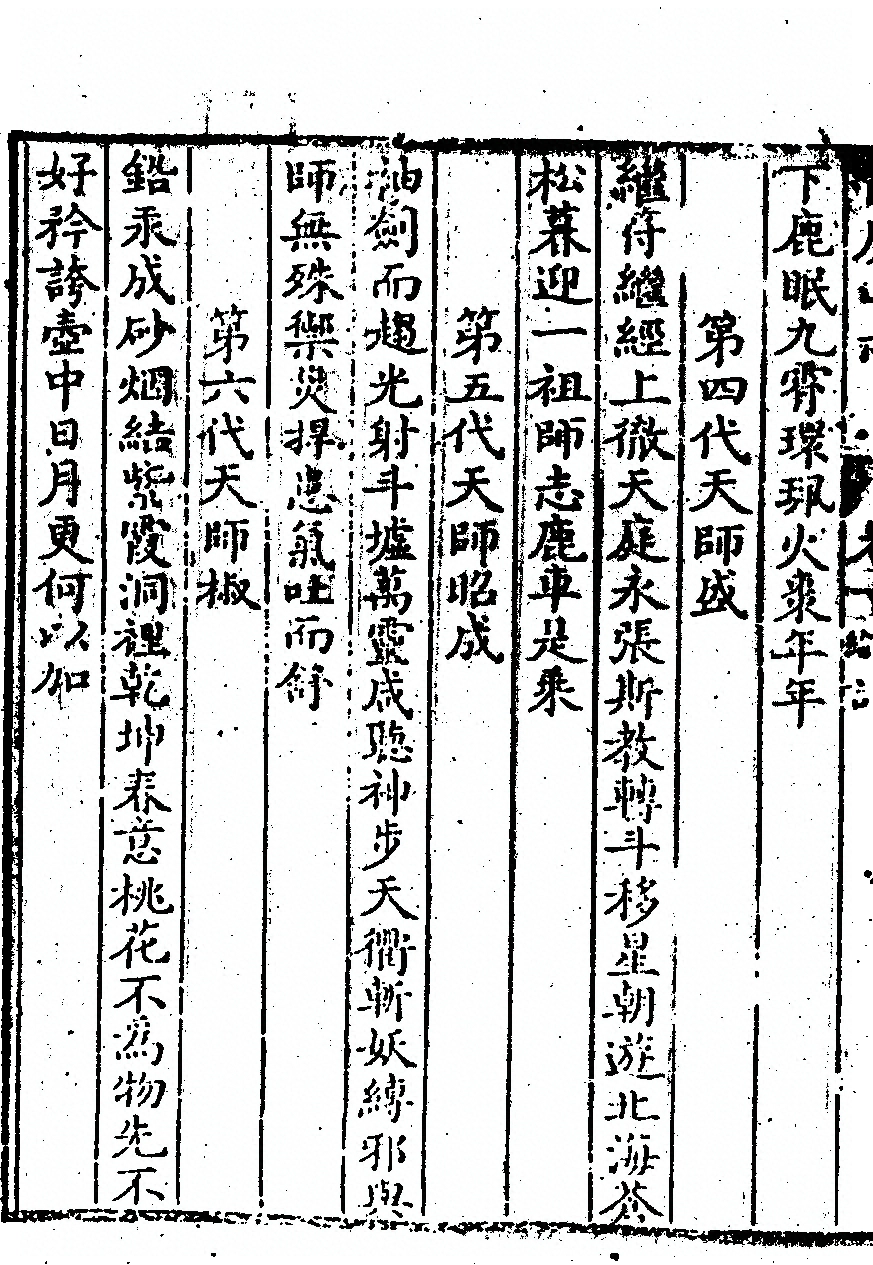 下鹿眠九霄環珮火棗年年
第四代天師盛
繼符繼經上徹天庭永張斯教轉斗移星朝遊北海蒼
松暮迎一祖師志鹿車是乘
第五代天師昭成
袖劍而趨光射斗墟萬靈咸聽神步天衢斬妖縛邪與
師無殊禦災捍患氣吐而舒
第六代天師椒
鉛汞成砂烟結紫霞洞裡乾坤春意桃花不為物先不
好矜誇壺中日月更何以加